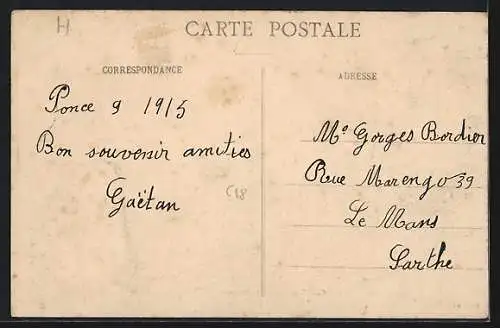 H
CARTE POSTALE
CORRESPONDANCE
Ponce 9 1915
Bon souvenir amities
Gaëtan
C18
ADRESSE
Me Gorges Bordier
Rue Marengo 39
Le Mans
Sarthe